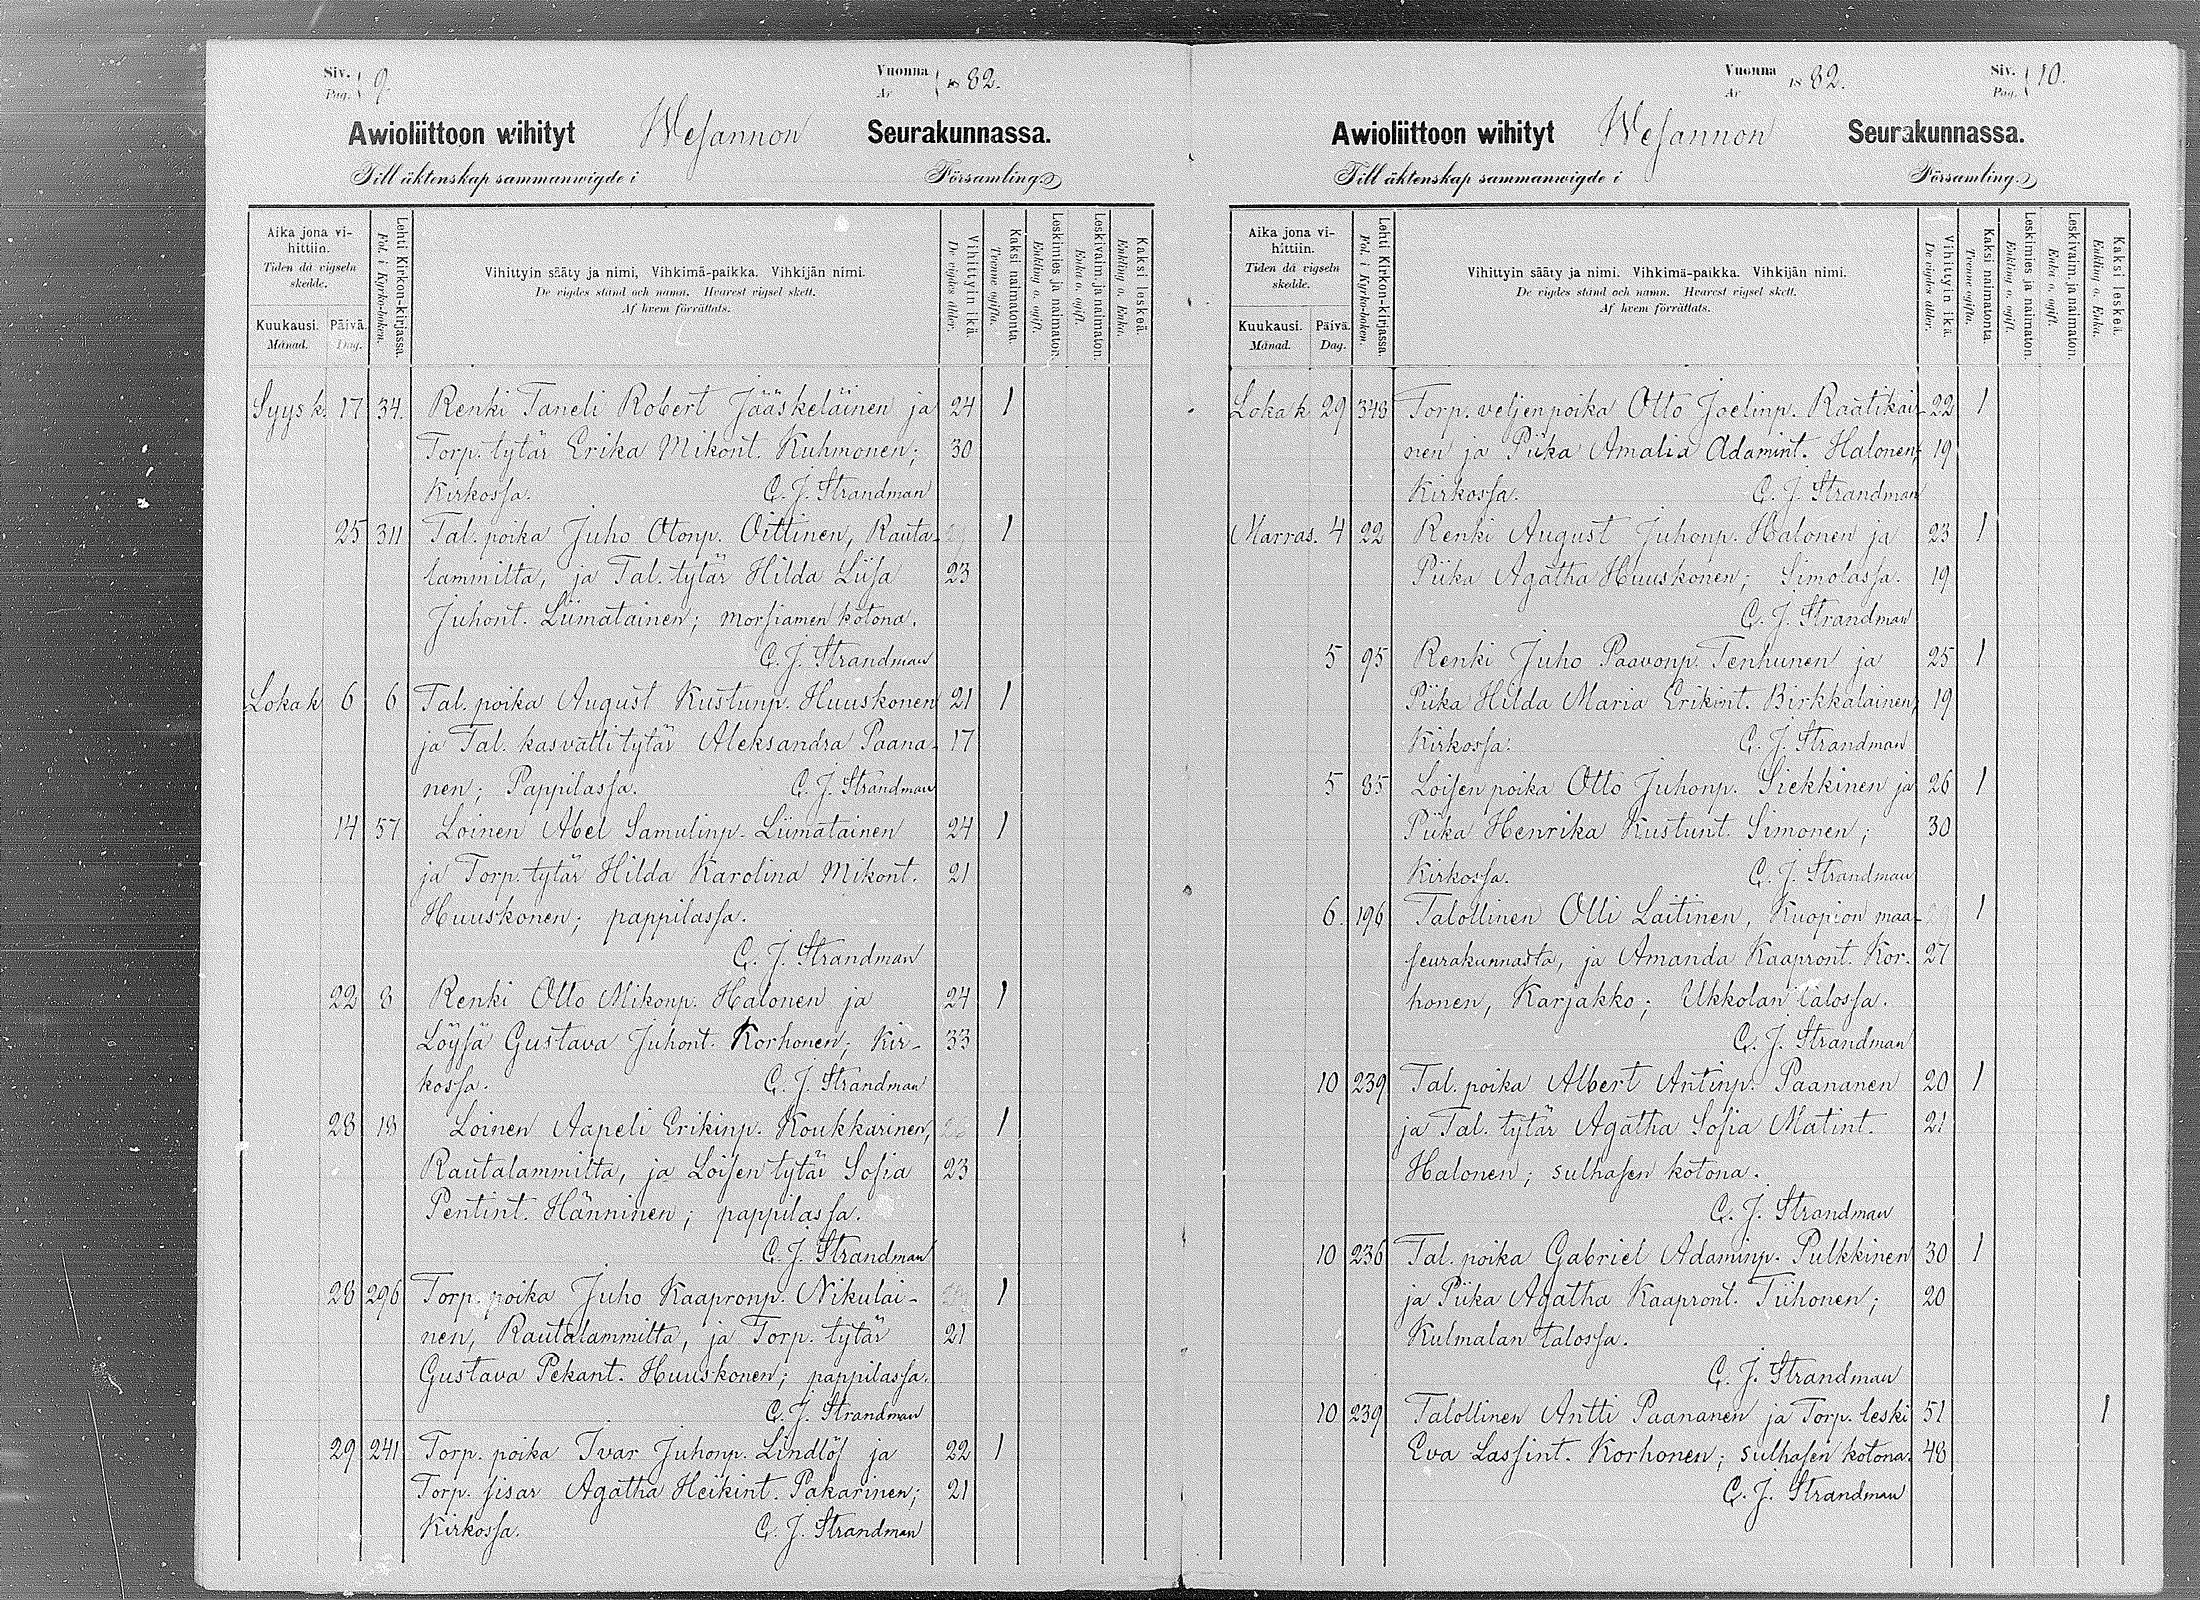 Siv. Pag. 9.
Vuonna År 1882.
Awioliittoon wihityt Wesannon Seurakunnassa.
Till äktenskap sammanwigde i Församling.
Aika jona vihittiin.
Tiden då vigseln skedde.
Kuukausi. Månad.
Päivä. Dag.
Lehti Kirkon-kirjassa.
Fol. i Kyrko-boken.
Vihittyin sääty ja nimi, Vihkimä-paikka. Vihkijän nimi.
De vigdes stånd och namn. Hvarest vigsel skett.
Af hvem förrättats.
Vihittyin ikä.
De vigdes ålder.
Kaksi naimatonta.
Tvenne ogifta.
Leskimies ja naimaton.
Enkling o. ogift.
Leskivaim. ja naimaton.
Enka o. ogift.
Kaksi leskeä.
Enkling o. Enka.
Syysk. 17 34. Renki Taneli Robert Jääskeläinen ja 24 1
Torp. tytär Erika Mikont. Kuhmonen; 30
Kirkossa. C. J. Strandman
25 311 Tal. poika Juho Otonp. Oittinen, Rauta- 1
lammilta, ja Tal. tytär Hilda Liisa 23
Juhont. Liimatainen; morsiamen kotona.
C. J. Strandman
Lokak 6 6 Tal. poika August Kustunp. Huuskonen 21 1
ja Tal. kasvatti tytär Aleksandra Paana- 17
nen; Pappilassa. C. J. Strandman
14 57 Loinen Abel Samulinp. Liimatainen 24 1
ja Torp. tytär Hilda Karolina Mikont. 21
Huuskonen; pappilassa.
C. J. Strandman
22 8 Renki Otto Mikonp. Halonen ja 24 1
Löysä Gustava Juhont. Korhonen; Kir- 33
kossa. C. J. Strandman
28 18 Loinen Aapeli Erikinp. Koukkarinen, 1
Rautalammilta, ja Loisen tytär Sofia 23
Pentint. Hänninen; pappilassa.
C. J. Strandman
28 296 Torp. poika Juho Kaapronp. Nikulai- 1
nen, Rautalammilta, ja Torp. tytär 21
Gustava Pekant. Huuskonen; pappilassa.
C. J. Strandman
29 241 Torp. poika Ivar Juhonp. Lindlöf ja 22 1
Torp. sisar Agatha Heikint. Pakarinen; 21
Kirkossa. C. J. Strandman
Vuonna År 1882.
Siv. Pag. 10.
Awioliittoon wihityt Wesannon Seurakunnassa.
Till äktenskap sammanwigde i Församling.
Aika jona vihittiin.
Tiden då vigseln skedde.
Kuukausi. Månad.
Päivä. Dag.
Lehti Kirkon-kirjassa.
Fol. i Kyrko-boken.
Vihittyin sääty ja nimi. Vihkimä-paikka. Vihkijän nimi.
De vigdes stånd och namn. Hvarest vigsel skett.
Af hvem förrättats.
Vihittyin ikä.
De vigdes ålder.
Kaksi naimatonta.
Tvenne ogifta.
Leskimies ja naimaton.
Enkling o. ogift.
Leskivaim. ja naimaton.
Enka o. ogift.
Kaksi leskeä.
Enkling o. Enka.
Lokak 29 348 Torp. veljenpoika Otto Joelinp. Raatikai- 22 1
nen ja Piika Amalia Adamint. Halonen; 19
Kirkossa. C. J. Strandman
Marras. 4 22 Renki August Juhonp. Halonen ja 23 1
Piika Agatha Huuskonen; Simolassa. 19
C. J. Strandman
5 95 Renki Juho Paavonp. Tenhunen ja 25 1
Piika Hilda Maria Erikint. Birkkalainen; 19
Kirkossa. C. J. Strandman
5 85 Loisen poika Otto Juhonp. Siekkinen ja 26 1
Piika Henrika Kustunt. Simonen; 30
Kirkossa. C. J. Strandman
6. 196 Talollinen Olli Laitinen, Kuopion maa- 1
seurakunnasta, ja Amanda Kaapront. Kor- 27
honen, Karjakko; Ukkolan talossa.
C. J. Strandman
10 239 Tal. poika Albert Antinp. Paananen 20 1
ja Tal. tytär Agatha Sofia Matint. 21
Halonen; sulhasen kotona.
C. J. Strandman
10 236 Tal. poika Gabriel Adaminp. Pulkkinen 30 1
ja Piika Agatha Kaapront. Tiihonen; 20
Kulmalan talossa.
C. J. Strandman
10 239 Talollinen Antti Paananen ja Torp. leski 51 1
Eva Lassint. Korhonen; sulhasen kotona. 48
C. J. Strandman